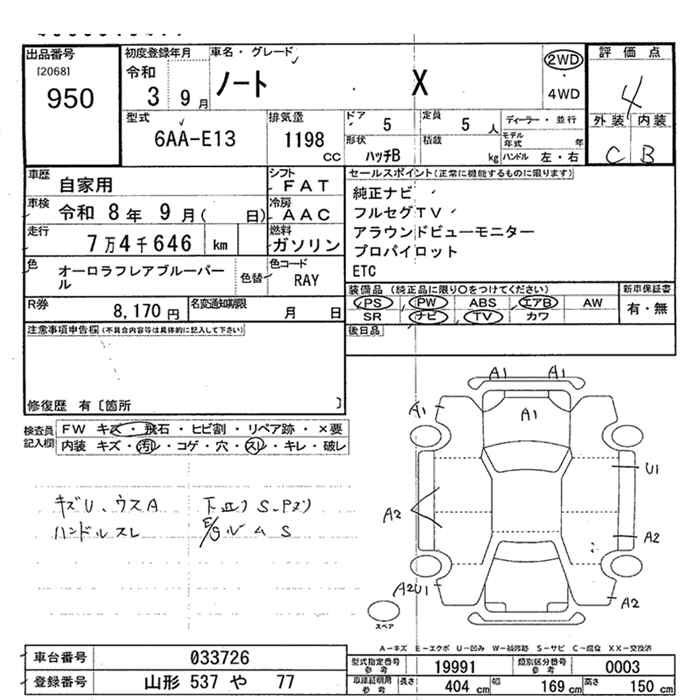 出品番号
[2068]
950
初度登録年月
令和
3 9月
車名・グレード
ノート X
2WD
・
4WD
評価点
4
外装 内装
C B
型式
6AA-E13
排気量
1198
CC
ドア
5
形状
ハッチB
定員
5 人
積載
kg
ディーラー・並行
モデル年式 年
ハンドル 左・右
車歴
自家用
シフト
FAT
車検
令和 8年 9月( 日)
冷房
AAC
走行
7万4千646 km
燃料
ガソリン
色
オーロラフレアブルーパール
色替
色コード
RAY
R券
8,170円
名変通知期限
月 日
セールスポイント(正常に機能するものに限ります)
純正ナビ
フルセグTV
アラウンドビューモニター
プロパイロット
ETC
装備品 (純正品に限り〇をつけてください)
PS PW ABS エアB AW
SR ナビ TV カワ
新車保証書
有・無
後日品
注意事項申告欄(不具合内容等は具体的に記入して下さい)
修復歴 有〔箇所 〕
検査員記入欄
FW キズ・飛石・ヒビ割・リペア跡・×要
内装 キズ・汚レ・コゲ・穴・スレ・キレ・破レ
キズU、ウスA
ハンドルスレ
下廻りS
S
A1 A1
A1 A1 A1
U1
A2
A2
A2U1
A2
スペア
A-キズ E-エクボ U-凹み W-補修跡 S-サビ C-腐食 XX-交換済
車台番号
033726
登録番号
山形 537 や 77
型式指定番号
参考
19991
類別区分番号
参考
0003
車庫証明用
参考
長さ
404 cm
幅
169 cm
高さ
150 cm